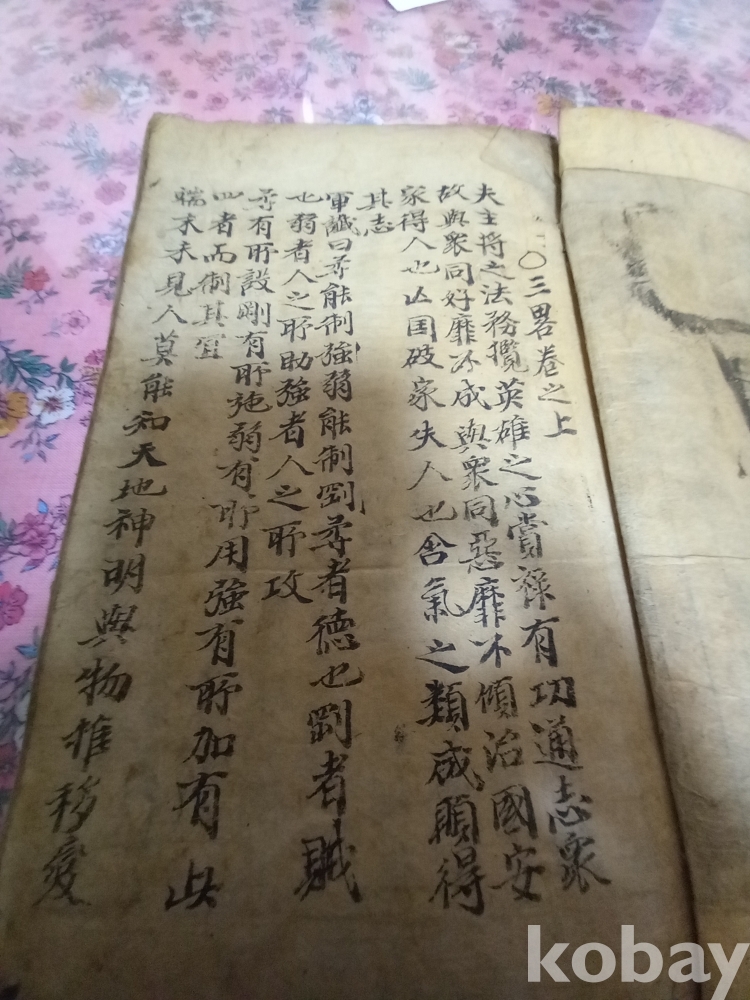 〇三畧卷之上
夫主將之法務攬英雄之心賞祿有功通志衆
故與衆同好靡不成與衆同惡靡不傾治國安
家得人也亡国破家失人也含氣之類咸願得
其志
軍讖曰柔能制強弱能制剛柔者德也剛者賊
也弱者人之所助強者人之所攻
柔有所設剛有所施弱有所用強有所加有此
四者而制其宜
端末未見人莫能知天地神明與物推移變
kobay